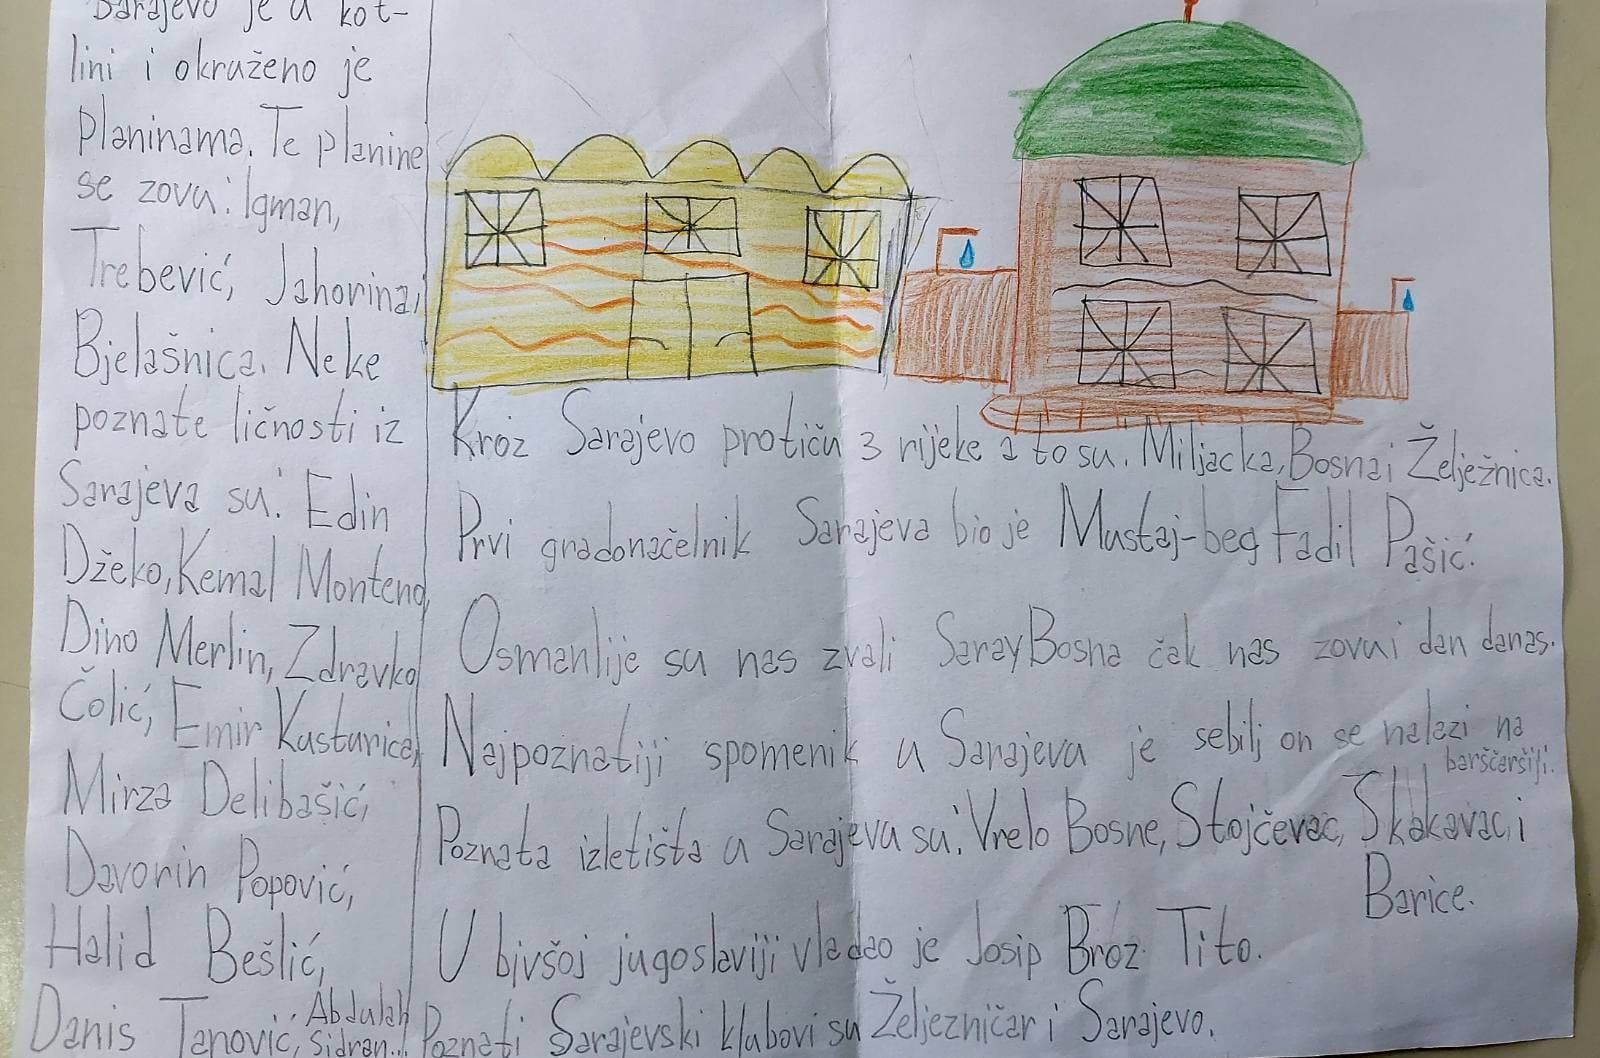 Sarajevo je u kot-
lini i okruženo je
planinama. Te planine
se zovu: Igman,
Trebević, Jahorina i
Bjelašnica. Neke
poznate ličnosti iz
Sarajeva su: Edin
Džeko, Kemal Monteno,
Dino Merlin, Zdravko
Čolić, Emir Kusturica,
Mirza Delibašić,
Davorin Popović,
Halid Bešlić,
Danis Tanović, Abdulah
Sidran...
Kroz Sarajevo protiču 3 rijeke a to su: Miljacka, Bosna i Željeznica.
Prvi gradonačelnik Sarajeva bio je Mustaj-beg Fadil Pašić.
Osmanlije su nas zvali SarayBosna čak nas zovu i dan danas.
Najpoznatiji spomenik u Sarajeva je sebilj on se nalazi na
barščaršiji.
Poznata izletišta u Sarajevu su: Vrelo Bosne, Stojčevac, Skakavac, i
Barice.
U bivšoj jugoslaviji vladao je Josip Broz Tito.
Poznati Sarajevski klubovi su Željezničar i Sarajevo.